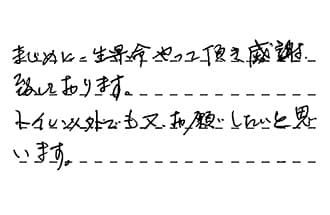 まじめに一生県命やって頂き感謝
致しております。
トイレ以外でも又お願いしたいと思
います。